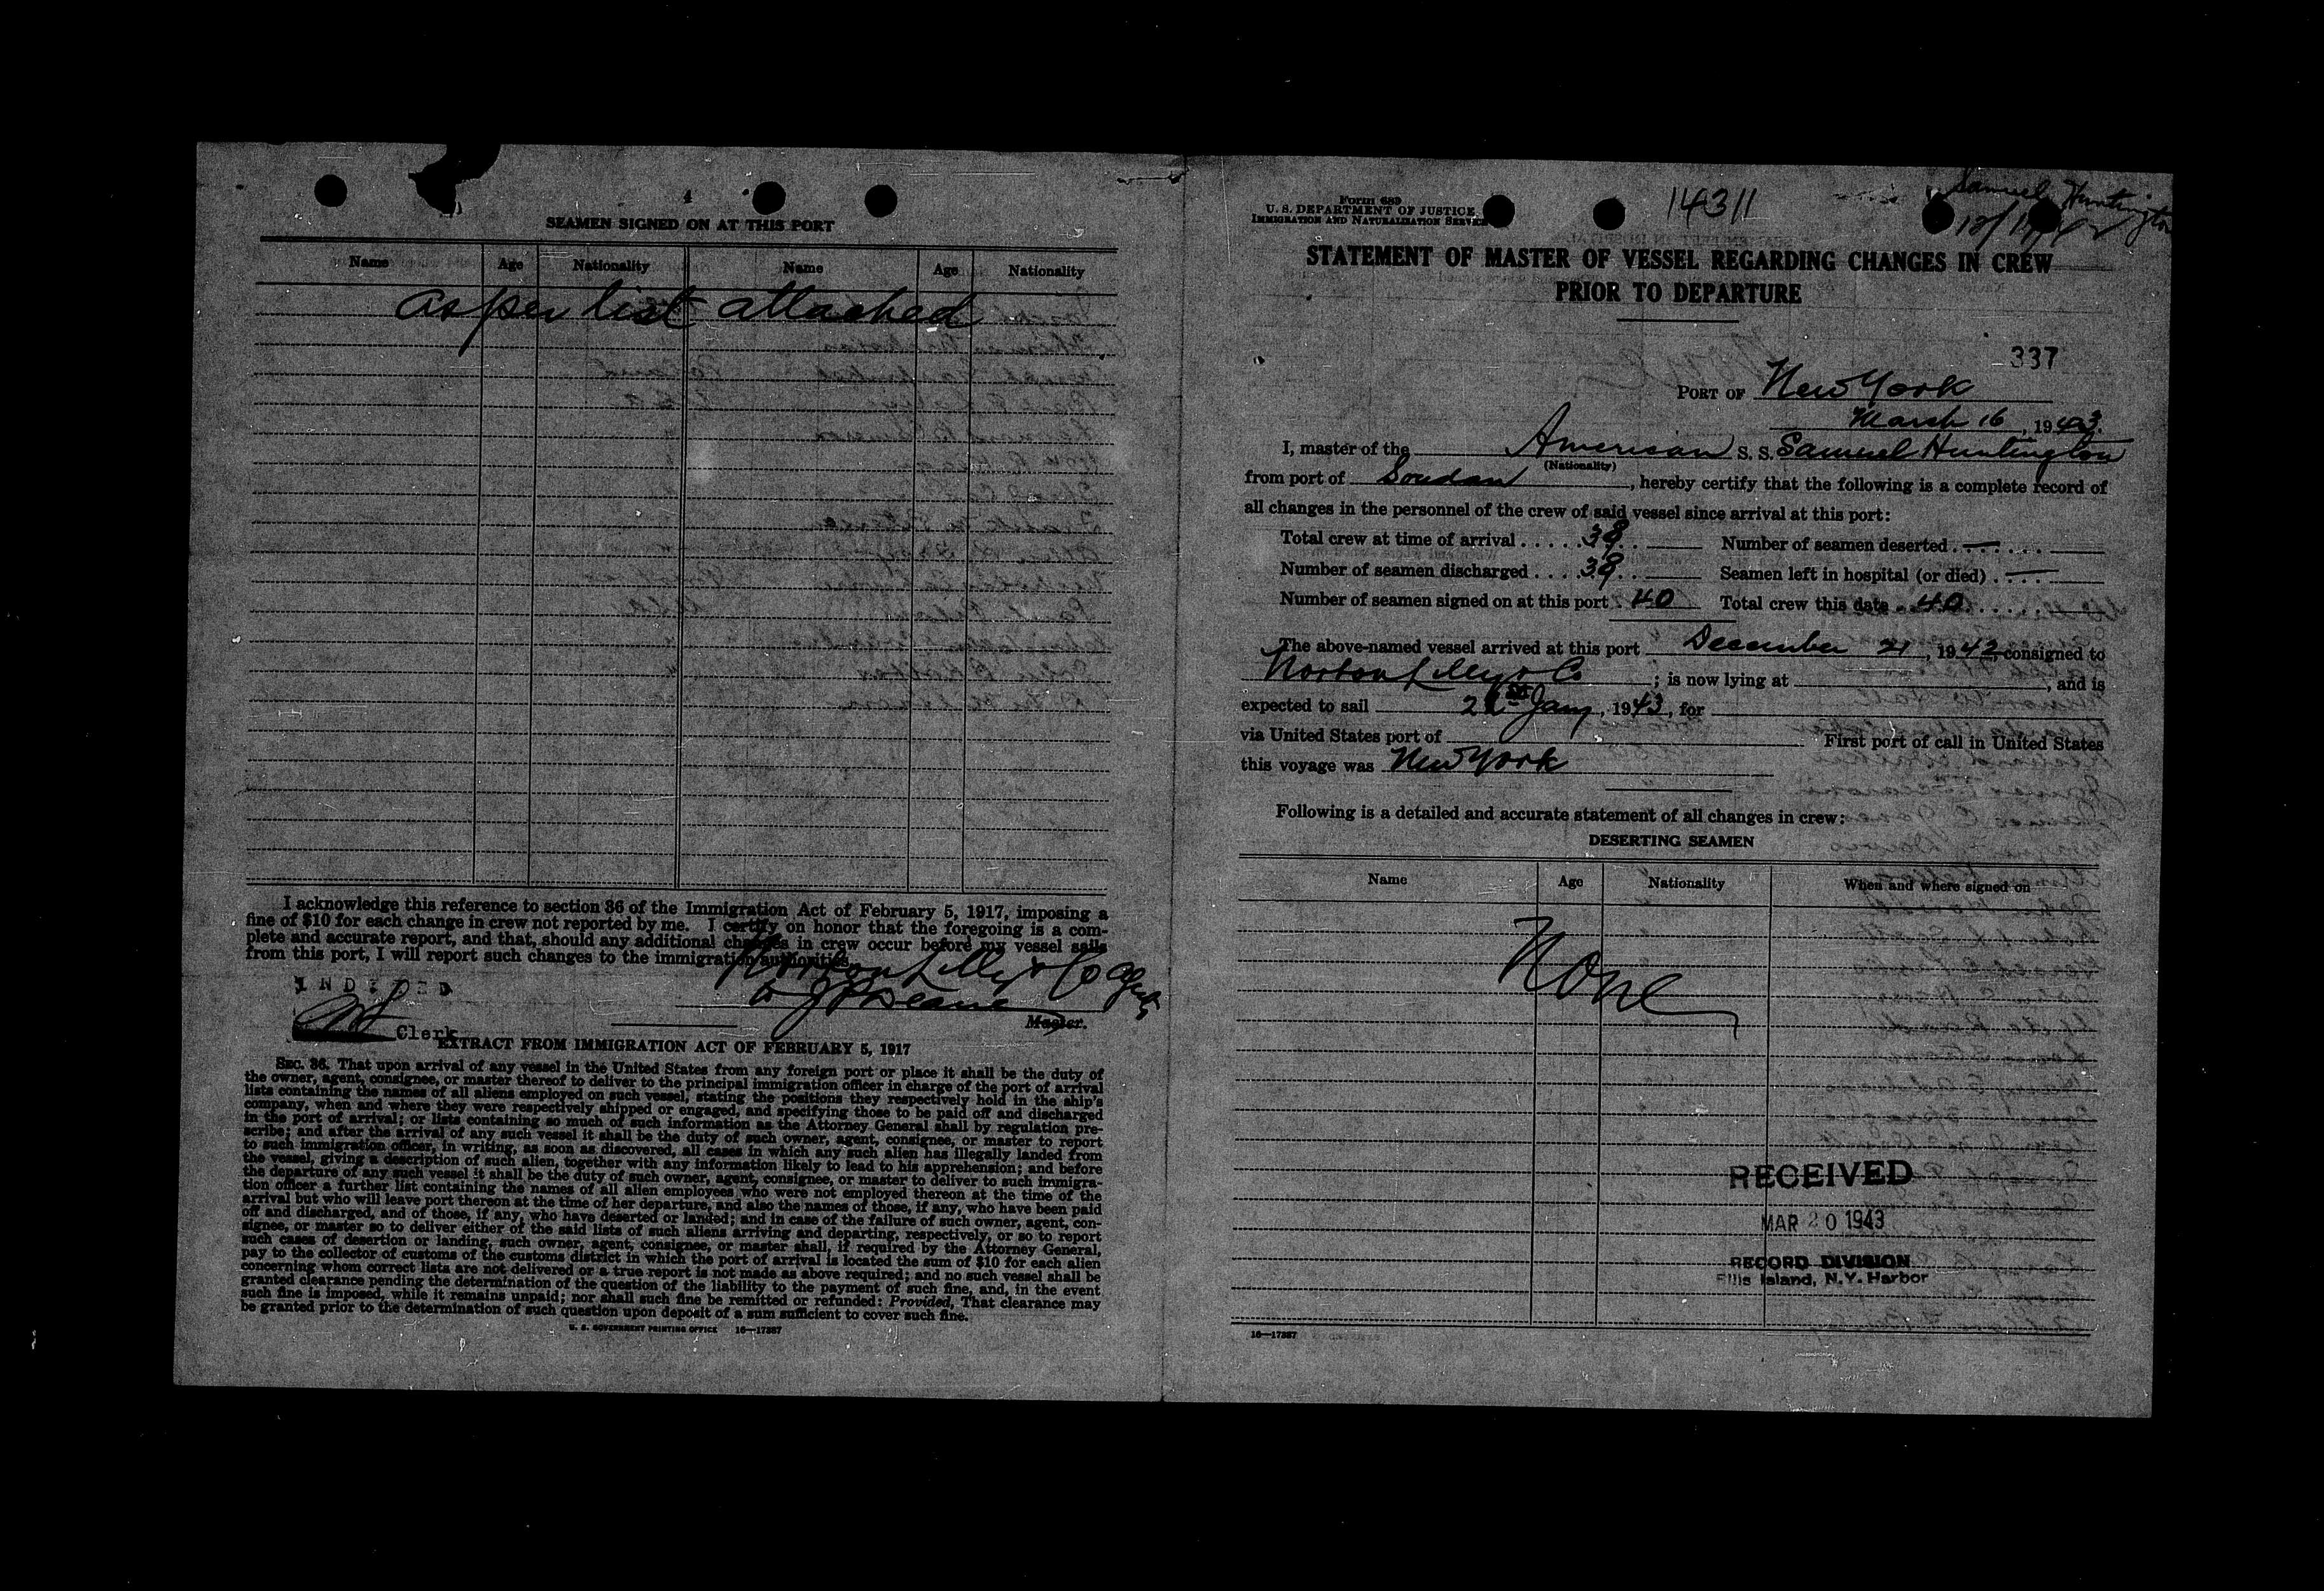 4
SEAMEN SIGNED ON AT THIS PORT
Name Age Nationality Name Age Nationality
as per list attached
I acknowledge this reference to section 36 of the Immigration Act of February 5, 1917, imposing a
fine of $10 for each change in crew not reported by me. I certify on honor that the foregoing is a com-
plete and accurate report, and that, should any additional changes in crew occur before my vessel sails
from this port, I will report such changes to the immigration authorities.
Norton Lilly & Co Agents
INDEXED
Master.
Clerk
EXTRACT FROM IMMIGRATION ACT OF FEBRUARY 5, 1917
SEC. 36. That upon arrival of any vessel in the United States from any foreign port or place it shall be the duty of
the owner, agent, consignee, or master thereof to deliver to the principal immigration officer in charge of the port of arrival
lists containing the names of all aliens employed on such vessel, stating the positions they respectively hold in the ship's
company, when and where they were respectively shipped or engaged, and specifying those to be paid off and discharged
in the port of arrival; or lists containing so much of such information as the Attorney General shall by regulation pre-
scribe; and after the arrival of any such vessel it shall be the duty of such owner, agent, consignee, or master to report
to such immigration officer, in writing, as soon as discovered, all cases in which any such alien has illegally landed from
the vessel, giving a description of such alien, together with any information likely to lead to his apprehension; and before
the departure of any such vessel it shall be the duty of such owner, agent, consignee, or master to deliver to such immigra-
tion officer a further list containing the names of all alien employees who were not employed thereon at the time of the
arrival but who will leave port thereon at the time of her departure, and also the names of those, if any, who have been paid
off and discharged, and of those, if any, who have deserted or landed; and in case of the failure of such owner, agent, con-
signee, or master so to deliver either of the said lists of such aliens arriving and departing, respectively, or so to report
such cases of desertion or landing, such owner, agent, consignee, or master shall, if required by the Attorney General,
pay to the collector of customs of the customs district in which the port of arrival is located the sum of $10 for each alien
concerning whom correct lists are not delivered or a true report is not made as above required; and no such vessel shall be
granted clearance pending the determination of the question of the liability to the payment of such fine, and, in the event
such fine is imposed, while it remains unpaid; nor shall such fine be remitted or refunded: Provided, That clearance may
be granted prior to the determination of such question upon deposit of a sum sufficient to cover such fine.
U. S. GOVERNMENT PRINTING OFFICE 16—17387
Form 689
U. S. DEPARTMENT OF JUSTICE
IMMIGRATION AND NATURALIZATION SERVICE
14311
Samuel Huntington
STATEMENT OF MASTER OF VESSEL REGARDING CHANGES IN CREW
PRIOR TO DEPARTURE
337
PORT OF New York
March 16, 1943.
I, master of the American S. S. Samuel Huntington
(Nationality)
from port of Soudan, hereby certify that the following is a complete record of
all changes in the personnel of the crew of said vessel since arrival at this port:
Total crew at time of arrival . . . . . 38 . . Number of seamen deserted . — . . . .
Number of seamen discharged . . . . 38 . . Seamen left in hospital (or died) . . — . .
Number of seamen signed on at this port . 40 Total crew this date . 40 . . . . . .
The above-named vessel arrived at this port December 21, 1942, consigned to
Norton Lilly & Co; is now lying at , and is
expected to sail Jany, 1943, for
via United States port of First port of call in United States
this voyage was New York
Following is a detailed and accurate statement of all changes in crew:
DESERTING SEAMEN
Name Age Nationality When and where signed on
None
RECEIVED
MAR 20 1943
RECORD DIVISION
Ellis Island, N.Y. Harbor
16—17387